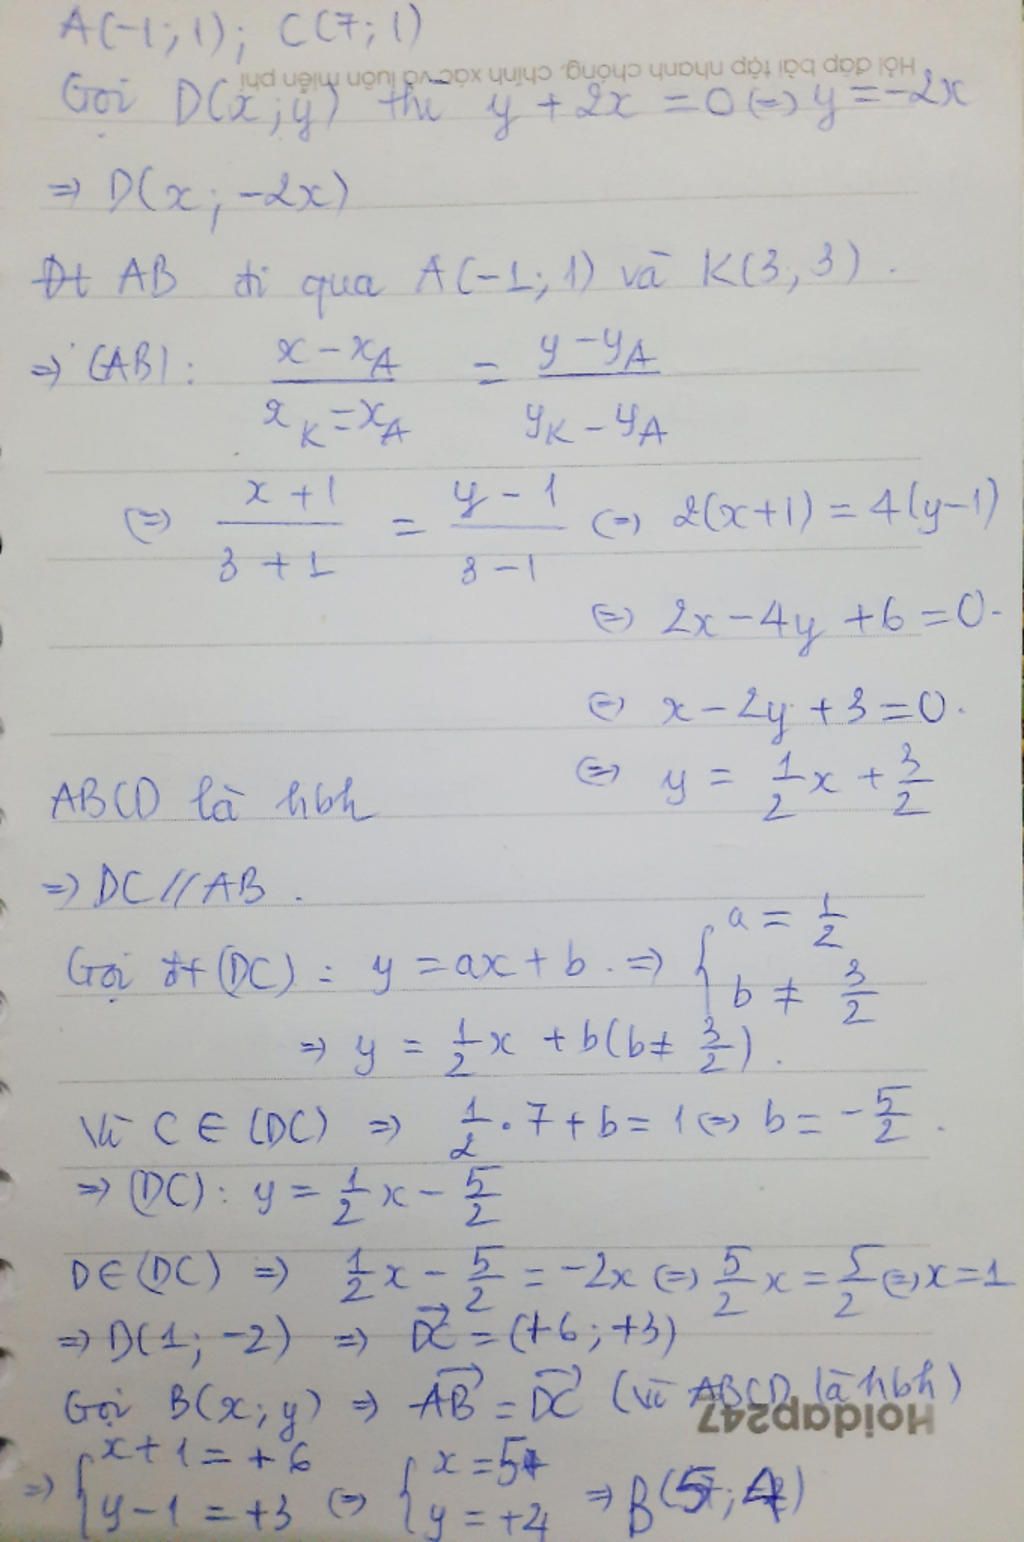 A(-1; 1); C(7; 1)
Hỏi đáp bài tập nhanh chóng, chính xác và luôn miễn phí
Gọi D(x; y) thì y + 2x = 0 (=) y = -2x
=> D(x; -2x)
Đt AB đi qua A(-1; 1) và K(3; 3).
=> (AB): (x - x_A)/(x_K = x_A) = (y - y_A)/(y_K - y_A)
(=) (x + 1)/(3 + 1) = (y - 1)/(3 - 1) (=) 2(x+1) = 4(y-1)
(=) 2x - 4y + 6 = 0.
(=) x - 2y + 3 = 0.
(=) y = 1/2 x + 3/2
ABCD là hbh
=> DC // AB.
Gọi đt (DC): y = ax + b. => { a = 1/2
b ≠ 3/2
=> y = 1/2 x + b (b ≠ 3/2).
Vì C ∈ (DC) => 1/2 . 7 + b = 1 (=) b = -5/2.
=> (DC): y = 1/2 x - 5/2
D ∈ (DC) => 1/2 x - 5/2 = -2x (=) 5/2 x = 5/2 (=) x = 1
=> D(1; -2) => DC→ = (+6; +3)
Gọi B(x; y) => AB→ = DC→ (vì ABCD là hbh)
Hoidap247
=> { x + 1 = +6 (=) { x = 5
y - 1 = +3 y = +4 => B(5; 4)